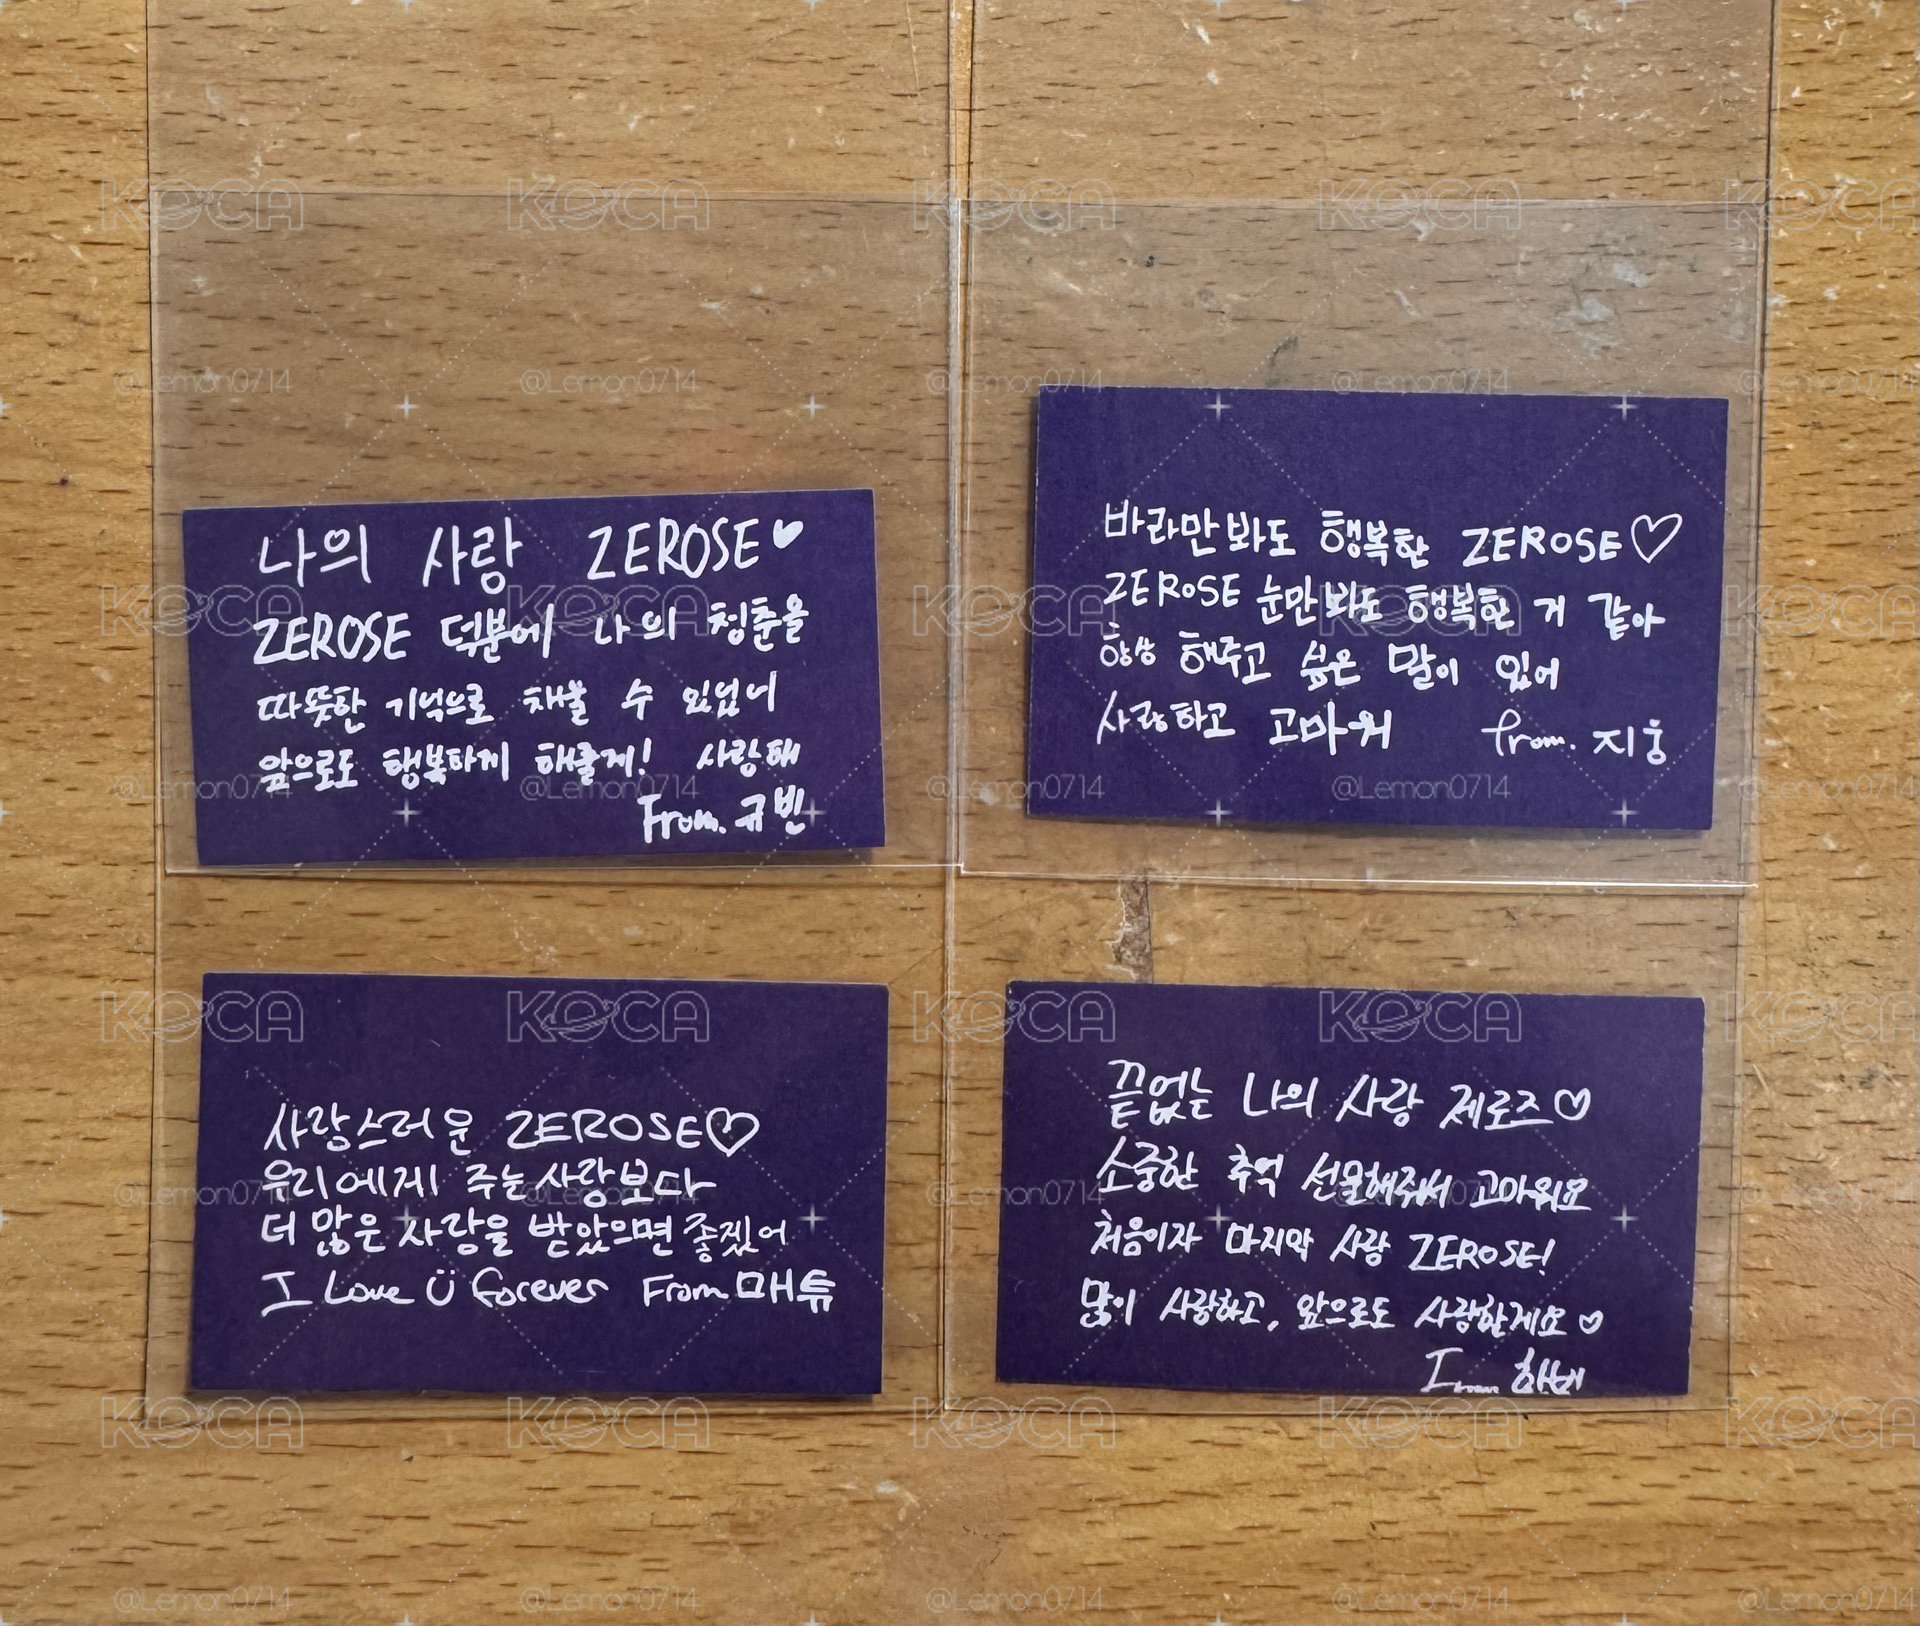 나의 사랑 ZEROSE♥
ZEROSE 덕분에 나의 청춘을
따뜻한 기억으로 채울 수 있었어
앞으로도 행복하게 해줄게! 사랑해
From. 규빈
바라만봐도 행복한 ZEROSE♡
ZEROSE 눈만봐도 행복한 거 같아
항상 해주고 싶은 말이 있어
사랑하고 고마워 from. 지웅
사랑스러운 ZEROSE♡
우리에게 주는 사랑보다
더 많은 사랑을 받았으면 좋겠어
I Love Ü forever From 매튜
끝없는 나의 사랑 제로즈♡
소중한 추억 선물해줘서 고마워요
처음이자 마지막 사랑 ZEROSE!
많이 사랑하고, 앞으로도 사랑할게요♡
From 한빈
KOCA
@Lemon0714